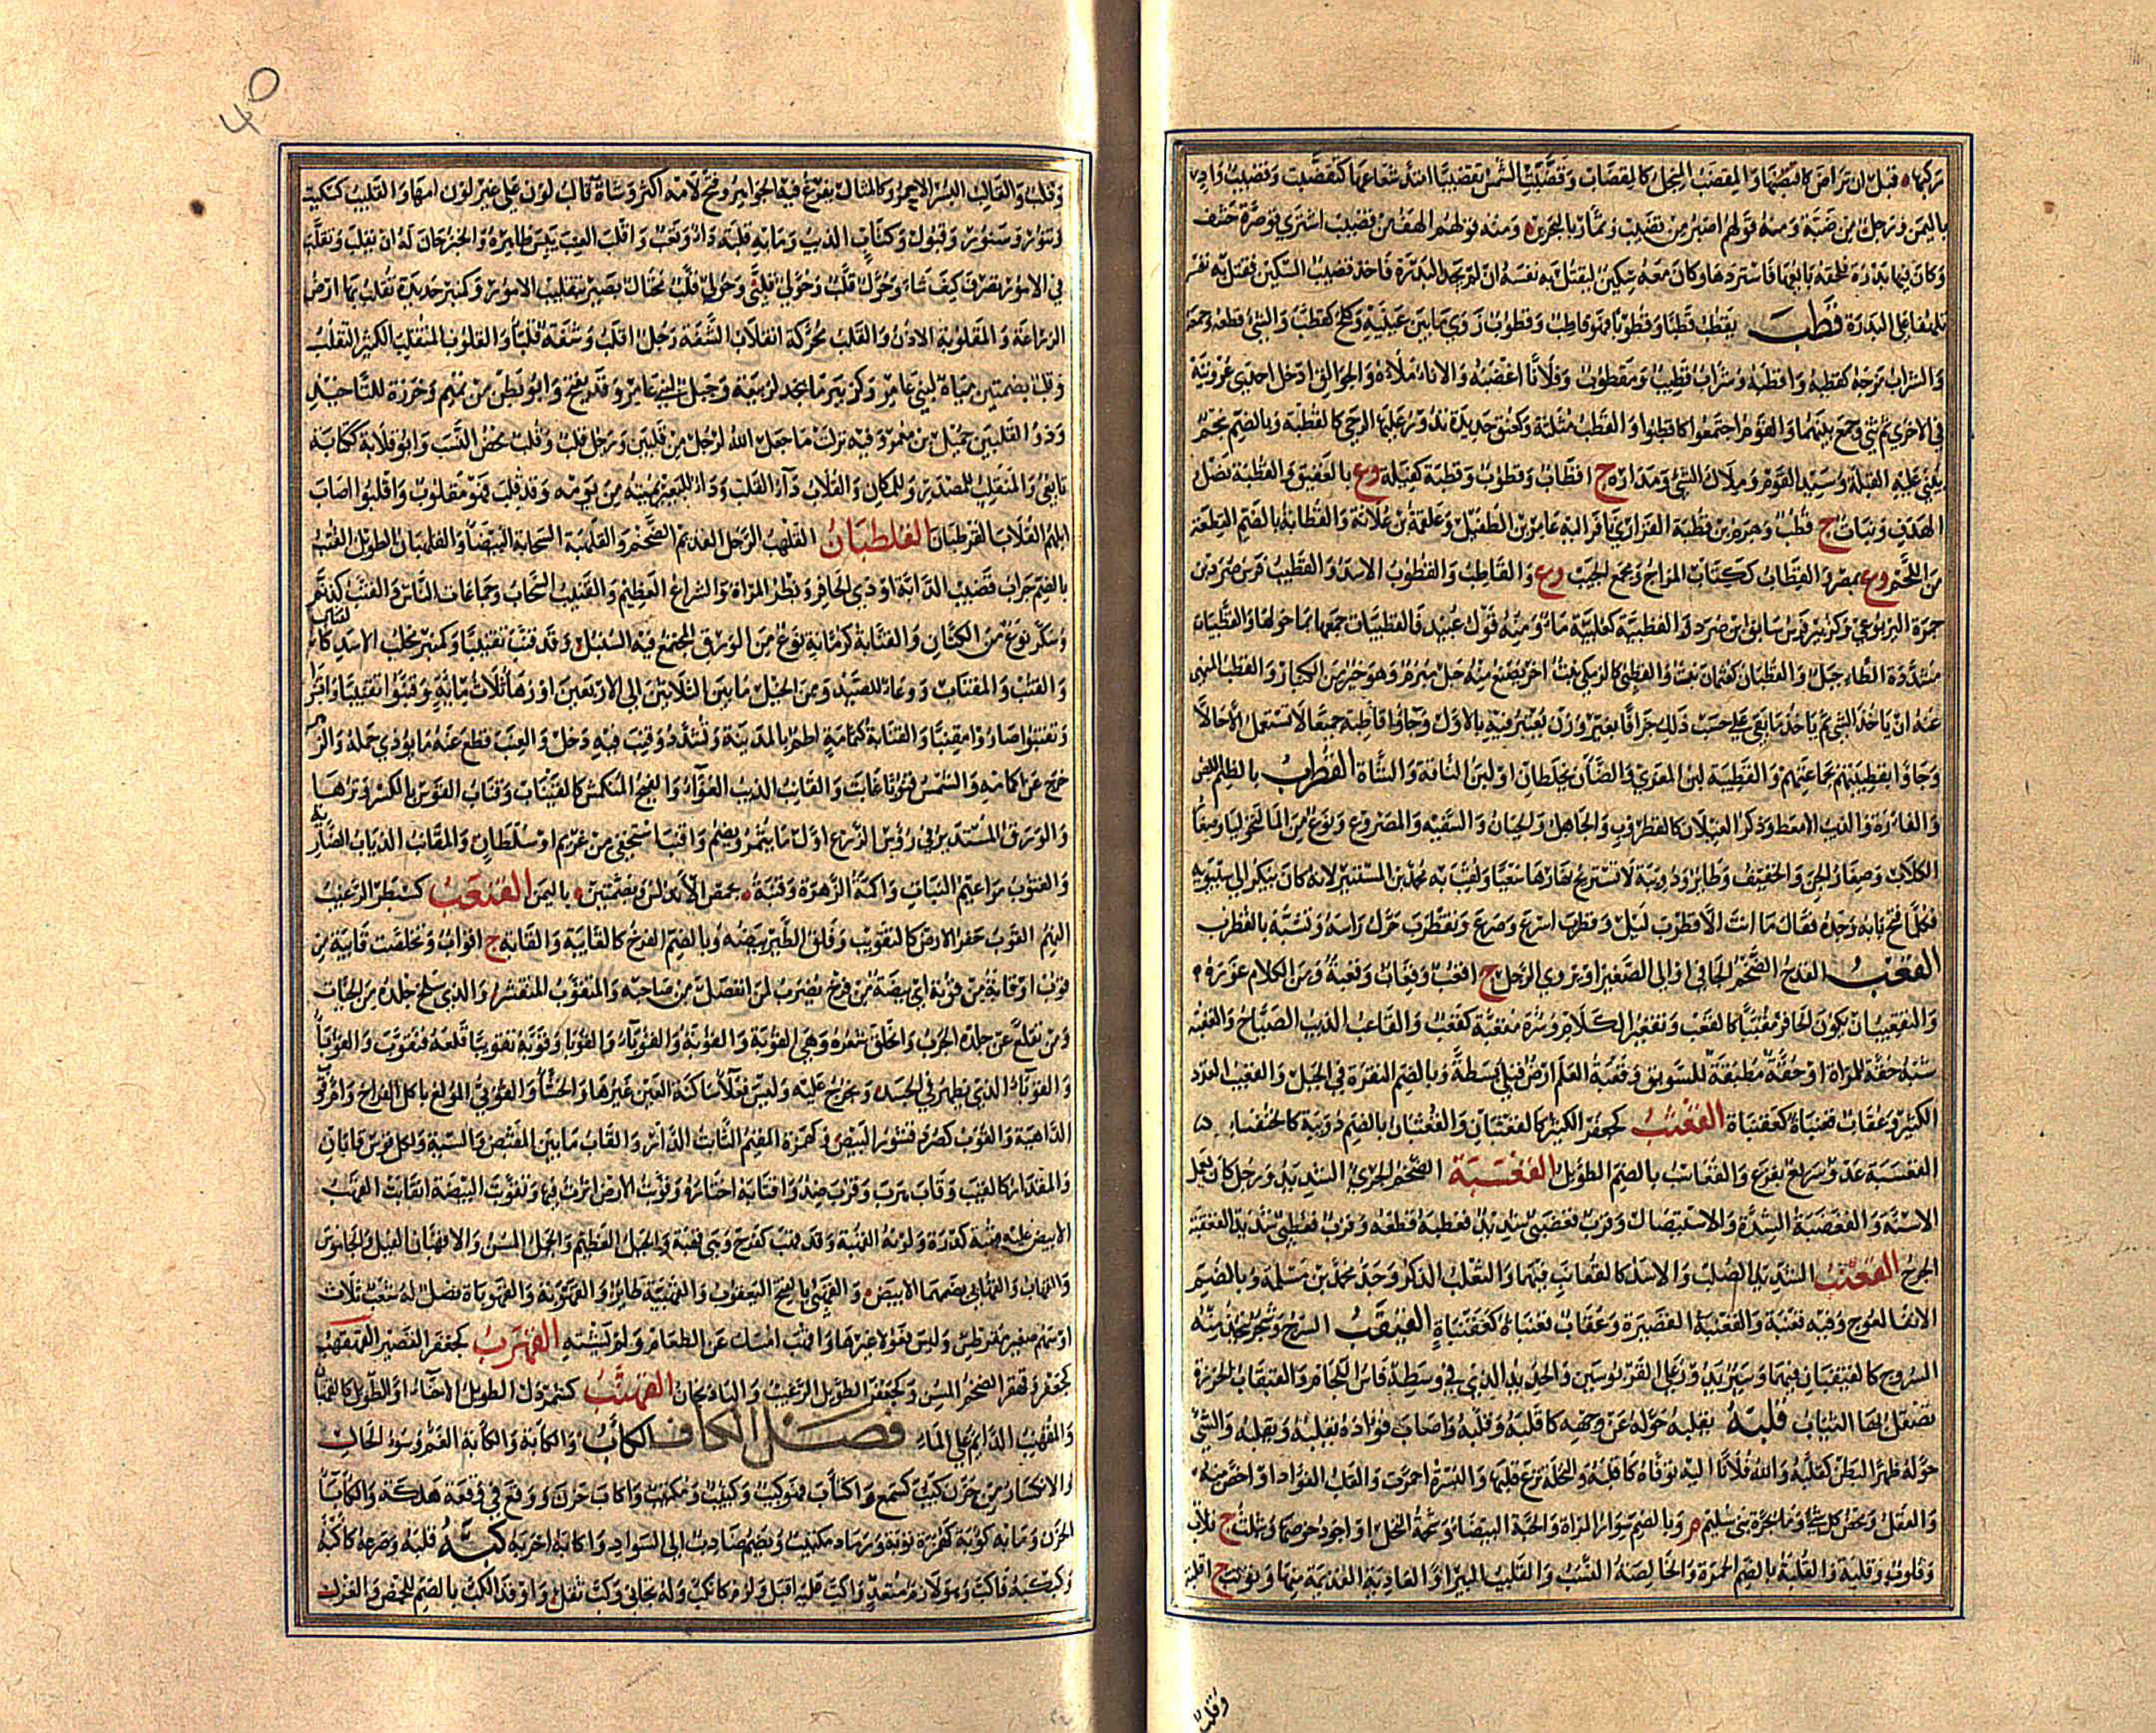 تركبها قبل ان تراض كاقتضبها والمقضب المنجل كالمقضاب وقضبت الشمس تقضيبا امتد شعاعها كتقضبت وقضيب واد
باليمن ورجل من ضبة ومنه قولهم اصبر من قضيب وتمار بالبحرين ومنه قولهم الهف من قضيب اشترى قوصرة حشف
وكان فيها بدرة فلحقه بائعها فاستردها وكان معه سكين ليقتل به نفسه ان لم يجد البدرة فاخذ قضيب السكين فقتل به نفسه
تلهفا على البدرة قطب يقطب قطبا وقطوبا فهو قاطب وقطوب زوى ما بين عينيه وكلح كقطب والشئ قطعه وجمعه
والشراب مزجه كقطبه واقطبه وشراب قطيب ومقطوب وفلانا اغضبه والاناء ملأه والجوالق ادخل احدى عروتيه
في الاخرى ثم ثنى وجمع بينهما والقوم اجتمعوا كاقطبوا والقطب مثلثة وكعنق حديدة تدور عليها الرحى كالقطبة وبالضم نجم
يبنى عليه القبلة وسيد القوم وملاك الشئ ومداره ج اقطاب وقطوب وقطبة كفيلة وع بالعقيق والقطبة نصل
الهدف ونبات ج قطب وهرم بن قطبة الفزاري نافر اليه عامر بن الطفيل وعلقمة بن علاثة والقطابة بالضم القطعة
من اللحم وع بمصر والقطاب ككتاب المزاج ومجمع الجيب وع والقاطب والقطوب الاسد والقطيب فرس صرد بن
حمزة اليربوعي وكزبير فرس سابق بن صرد والقطبية كعربية ماء ومنه قول عبيد فالقطبيات جمعها بما حولها والقطبيات
مشددة الطاء جبل والقطبان كعثمان نبت والقطبى كالزمكى نبت اخر يصنع منه حبل مبرم وهو خير من الكنبار والقطب المنهي
عنه ان ياخذ الشئ ثم ياخذ ما بقي على حسب ذلك جزافا بغير وزن يعتبر فيه بالاول وجاؤا قاطبة جميعا لا تستعمل الا حالا
وجاؤا بقطيبتهم بجماعتهم والقطيبة لبن المعزى والضأن يخلطان او لبن الناقة والشاة القطرب بالضم اللص
والفارة والذئب الامعط وذكر الغيلان كالقطروب والجاهل والجبان والسفيه والمصروع ونوع من الماليخوليا وصغار
الكلاب وصغار الجن والخفيف وطائر ودويبة لا تستريح نهارها سعيا ولقب به محمد بن المستنير لانه كان يبكر الى سيبويه
فكلما فتح بابه وجده فقال ما انت الا قطرب ليل وقطرب اسرع وصرع وتقطرب حرك راسه وتشبه بالقطرب
القعب القدح الضخم الجافي او الى الصغير او يروي الرجل ج اقعب وقعاب وقعبة ومن الكلام غوره
والتقعيب ان يكون الحافر مقببا كالقعب وتقعير الكلام وسرة مقعبة كقعب والقاعب الذئب الصياح والقعبة
شبه حقة للمراة او حقة مطبقة للسويق وقعبة العلم ارض قبلي بسيطة وبالضم النقرة في الجبل والقعيب العدد
الكثير وعقاب قعنباة كعقنباة القعثب كجعفر الكثير كالقعثبان والقعثبان بالضم دويبة كالخنفساء
القعسبة عدو سريع بفزع والقعاسب بالضم الطويل القعضبة الضخم الجرئ الشديد ورجل كان يعمل
الاسنة والقعضبة الشدة والاستيصال وقرب قعضبي شديد قعطبه قطعه وقرب قعطبي شديد القعقبة
الجرح القعنب الشديد الصلب والاسد كالقعانب فيهما والثعلب الذكر وجد محمد بن مسلمة وبالضم
الانف العوج وفيه قعنبة والقعنبة القصيرة وعقاب قعنباة كعقنباة القيقب السرج وشجر تتخذ منه
السروج كالقيقبان فيهما وسير يدور على القربوسين والحديد الذي في وسطه فاس اللجام والقيقاب الخرزة
تصقل بها الثياب قلبه يقلبه حوله عن وجهه كاقلبه وقلبه واصاب فؤاده يقلبه ويقلبه والشئ
حوله ظهرا لبطن كقلبه والله فلانا اليه توفاه كاقلبه والنخلة نزع قلبها والبسرة احمرت والقلب الفؤاد او اخص منه
والعقل ومحض كل شئ وماء بحرة بني سليم م وبالضم سوار المراة والحية البيضاء وشحمة النخل او اجود خوصها ويثلث ج قلاب
وقلوب وقلبة والقلبة بالضم الحمرة والخالصة النسب والقليب البير او العادية القديمة منها ويؤنث ج اقلبة
وقلب
٤٥
وقلب والقالب البسر الاحمر وكالمثال يفرغ فيه الجواهر وفتح لامه اكثر وشاة قالب لون على غير لون امها والقليب كسكيت
وتنور وسنور وقبول وكتاب الذئب وما به قلبة داء وتعب واقلب العنب يبس ظاهره والخبز حان له ان يقلب وتقلب
في الامور تصرف كيف شاء وحول قلب وحولي قلبي وحولي قلب محتال بصير بتقليب الامور وكمنبر حديدة تقلب بها ارض
الزراعة والمقلوبة الاذن والقلب محركة انقلاب الشفة رجل اقلب وشفة قلباء والقلوب المتقلب الكثير التقلب
وقلب بضمتين مياه لبني عامر وكزبير ماء بنجد لربيعة وجبل لبني عامر وقد يفتح وابو بطن من تميم وخرزة للتأخيذ
وذو القلبين جميل بن معمر وفيه نزلت ما جعل الله لرجل من قلبين ورجل قلب وقلب محض النسب وابو قلابة ككتابة
تابعي والمنقلب للمصدر وللمكان والقلاب داء القلب وداء للبعير يميته من يومه وقد قلب فهو مقلوب واقلبوا اصاب
ابلهم القلاب القرطبان القلطبان القلهب الرجل القديم الضخم والقلهبة السحابة البيضاء والقلهبان الطويل القنب
بالضم جراب قضيب الدابة او ذي الحافر وبظر المراة والشراع العظيم والقنيب السحاب وجماعات الناس والقنب كدنم
وسكر نوع من الكتان والقنابة كرمانة نوع من الورق المجتمع فيه السنبل وقد قنب تقنيبا وكمنبر مخلب الاسد كالقناب
والقنب والمقناب ووعاء للصيد ومن الخيل ما بين الثلاثين الى الاربعين او زهاء ثلاث مائة وقنبوا تقنيبا واقنبوا
وتقنبوا صاروا مقنبا والقنابة كثمامة اطم بالمدينة وتشدد وقنب فيه دخل والعنب قطع عنه ما يؤذي حمله والزهر
خرج عن اكمامه والشمس قنوبا غابت والقانب الذئب العواء والفيج المنكمش كالقيناب وقناب القوس بالكسر وترها
والورق المستدير في رؤس الزرع اول ما يثمر ويضم واقنب استخفى من غريم او سلطان والمقانب الذئاب الضارية
والقنوب براعيم النبات واكمة الزهرة وقنبة بحمص الاندلس وبضمتين باليمن القنعب كسبطر الرغيب
النهم القوب حفر الارض كالتقويب وفلق الطير بيضه وبالضم الفرخ كالقايبة والقابة ج اقواب وتخلصت قايبة من
قوب او قابة من قوبة اي بيضة من فرخ يضرب لمن انفصل من صاحبه والمتقوب المتقشر والذي سلخ جلده من الحيات
ومن تقلع عن جلده الجرب وانحلق شعره وهي القوبة والقوبة والقوباء والقوبا وقوبه تقويبا قلعه فتقوب والقوباء
والقوباء الذي يظهر في الجسد ويخرج عليه وليس فعلاء ساكنة العين غيرها والخشاء والقوبي المولع باكل الفراخ وام قوب
الداهية والقوب كصرد قشور البيض وكهمزة المقيم الثابت الدار والقاب ما بين المقبض والسية ولكل قوس قابان
والمقدار كالقيب وقاب هرب وقرب ضد واقتابه اختاره وقوبت الارض اثرت فيها وتقوبت البيضة انقابت القهب
الابيض علته كدرة ولونه القهبة وقد قهب كفرح وهي قهبة والجبل العظيم والجمل المسن والاقهبان الفيل والجاموس
والقهاب والقهابي بضمهما الابيض والقهبى بالفتح اليعقوب والقهيبة طائر والقهوبة والقهوباة نصل له شعب ثلاث
او سهم صغير مقرطس وليس فعولى غيرها واقهب امسك عن الطعام ولم يشتهه القهزب كجعفر القصير القهقب
كجعفر وقهقر الضخم المسن وكجعفر الطويل الرغيب والباذنجان القهنب كشمردل الطويل الاجناء او الطويل كالقهنبان
والمقهنب الدايم على الماء فصل الكاف الكأب والكأبة والكآبة الغم وسوء الحال
والانكسار من حزن كئب كسمع واكتأب فهو كئب وكئيب ومكتئب واكأب حزن ووقع في هلكة والكأباء
الحزن وما به كوبة كهمزة توبة ورماد مكتئب وبضم ضارب الى السواد واكابه احزنه كبه قلبه وصرعه كاكبه
وكبكبه فاكب وهو لازم متعد واكب عليه اقبل ولزم كانكب وله تجانى وكب ثقل واوقد الكب بالضم للحمض والغزل